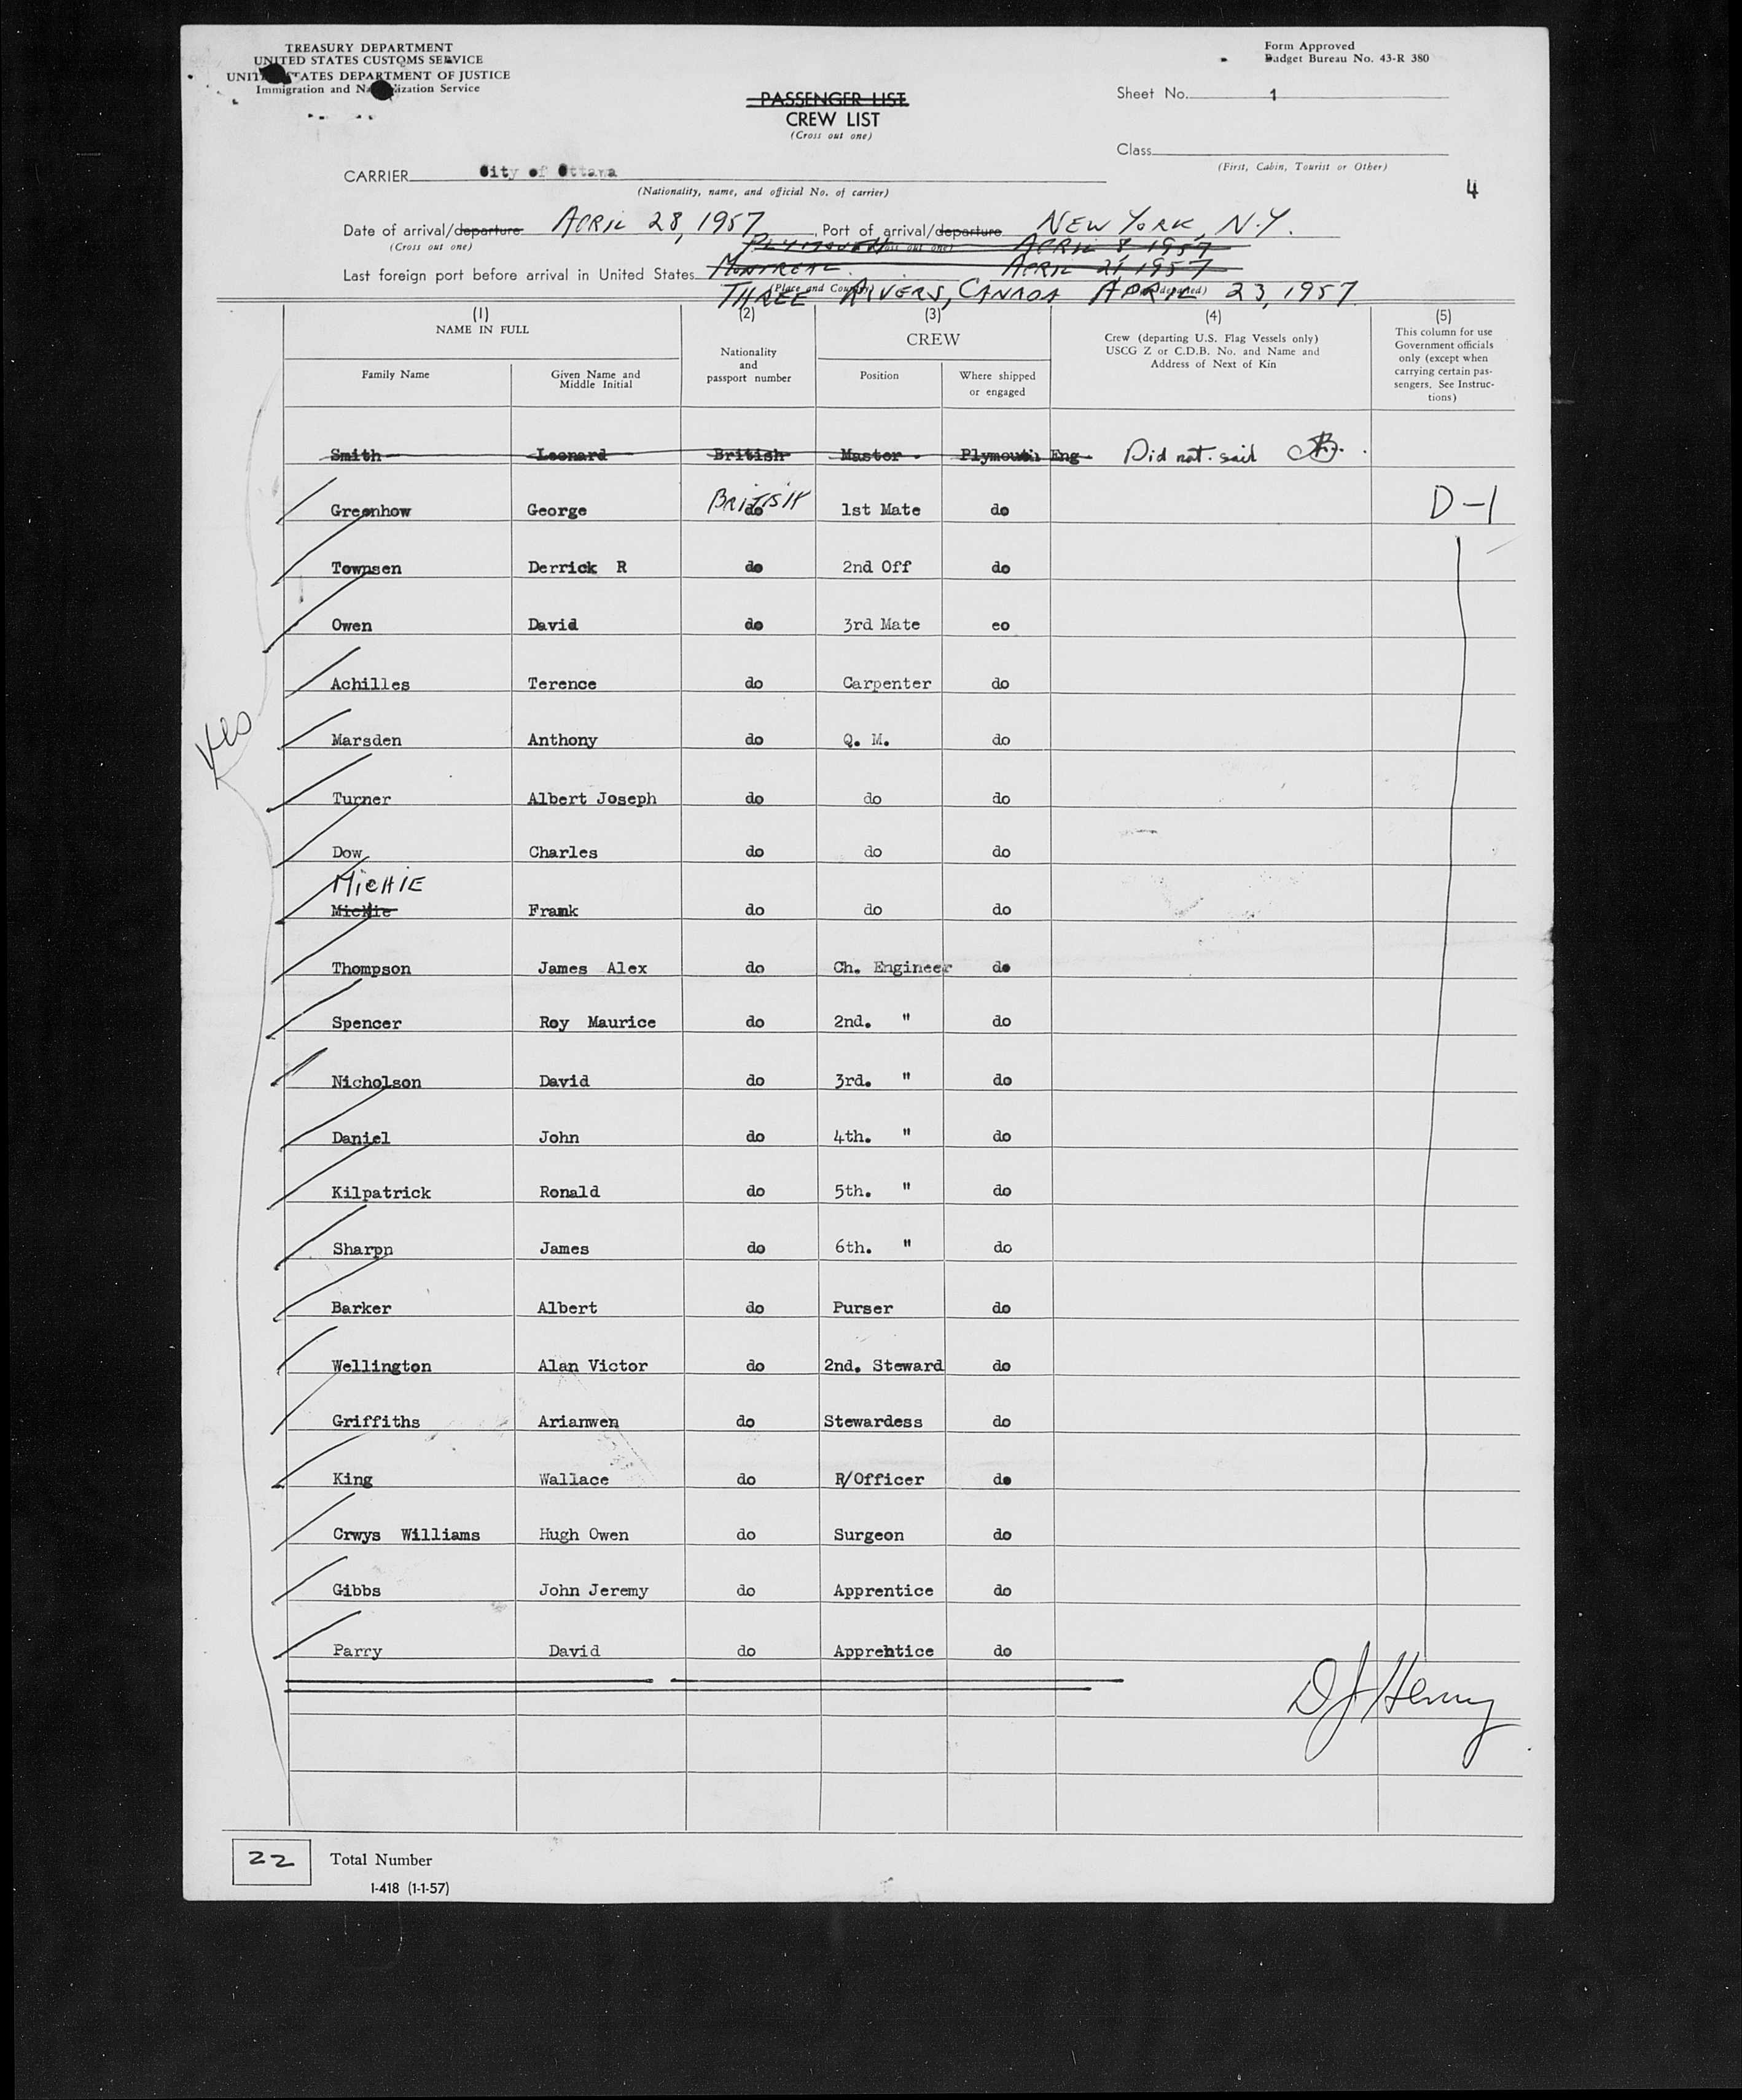 TREASURY DEPARTMENT
UNITED STATES CUSTOMS SERVICE
UNITED STATES DEPARTMENT OF JUSTICE
Immigration and Naturalization Service
Form Approved
Budget Bureau No. 43-R 380
PASSENGER LIST
CREW LIST
(Cross out one)
Sheet No. 1
Class
(First, Cabin, Tourist or Other)
4
CARRIER City of Ottawa
(Nationality, name, and official No. of carrier)
Date of arrival/departure APRIL 28, 1957, Port of arrival/departure NEW YORK, N.Y.
(Cross out one) (Cross out one)
PLYMOUTH APRIL 8, 1957
Last foreign port before arrival in United States MONTREAL. APRIL 21, 1957
(Place and Country) (departed)
THREE RIVERS, CANADA APRIL 23, 1957
(1) NAME IN FULL (2) Nationality and passport number (3) CREW (4) Crew (departing U.S. Flag Vessels only) USCG Z or C.D.B. No. and Name and Address of Next of Kin (5) This column for use Government officials only (except when carrying certain passengers. See Instructions)
Family Name Given Name and Middle Initial Position Where shipped or engaged
Smith Leonard British Master Plymouth Eng Did not sail
BRITISH
Greenhow George do 1st Mate do D-1
Townsen Derrick R do 2nd Off do
Owen David do 3rd Mate eo
Achilles Terence do Carpenter do
Yes
Marsden Anthony do Q. M. do
Turner Albert Joseph do do do
Dow Charles do do do
MICHIE
Mickie Frank do do do
Thompson James Alex do Ch. Engineer do
Spencer Roy Maurice do 2nd. " do
Nicholson David do 3rd. " do
Daniel John do 4th. " do
Kilpatrick Ronald do 5th. " do
Sharpn James do 6th. " do
Barker Albert do Purser do
Wellington Alan Victor do 2nd. Steward do
Griffiths Arianwen do Stewardess do
King Wallace do R/Officer do
Crwys Williams Hugh Owen do Surgeon do
Gibbs John Jeremy do Apprentice do
Parry David do Apprentice do
D J Henry
22 Total Number
I-418 (1-1-57)